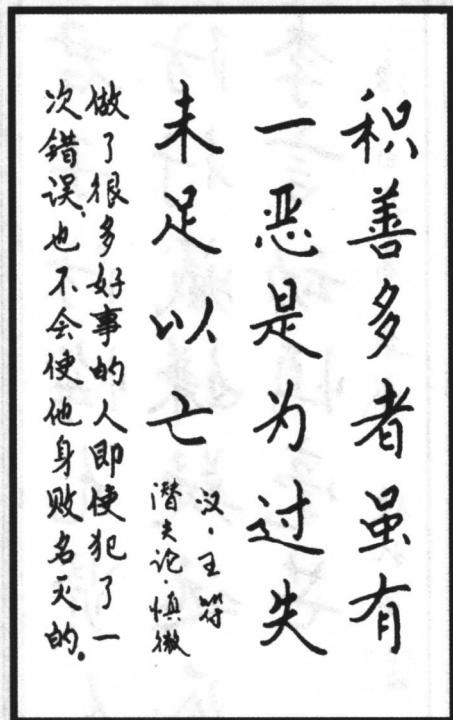 积善多者虽有
一恶是为过失
未足以亡
汉·王符
潜夫论·慎微
做了很多好事的人即使犯了一
次错误,也不会使他身败名灭的。